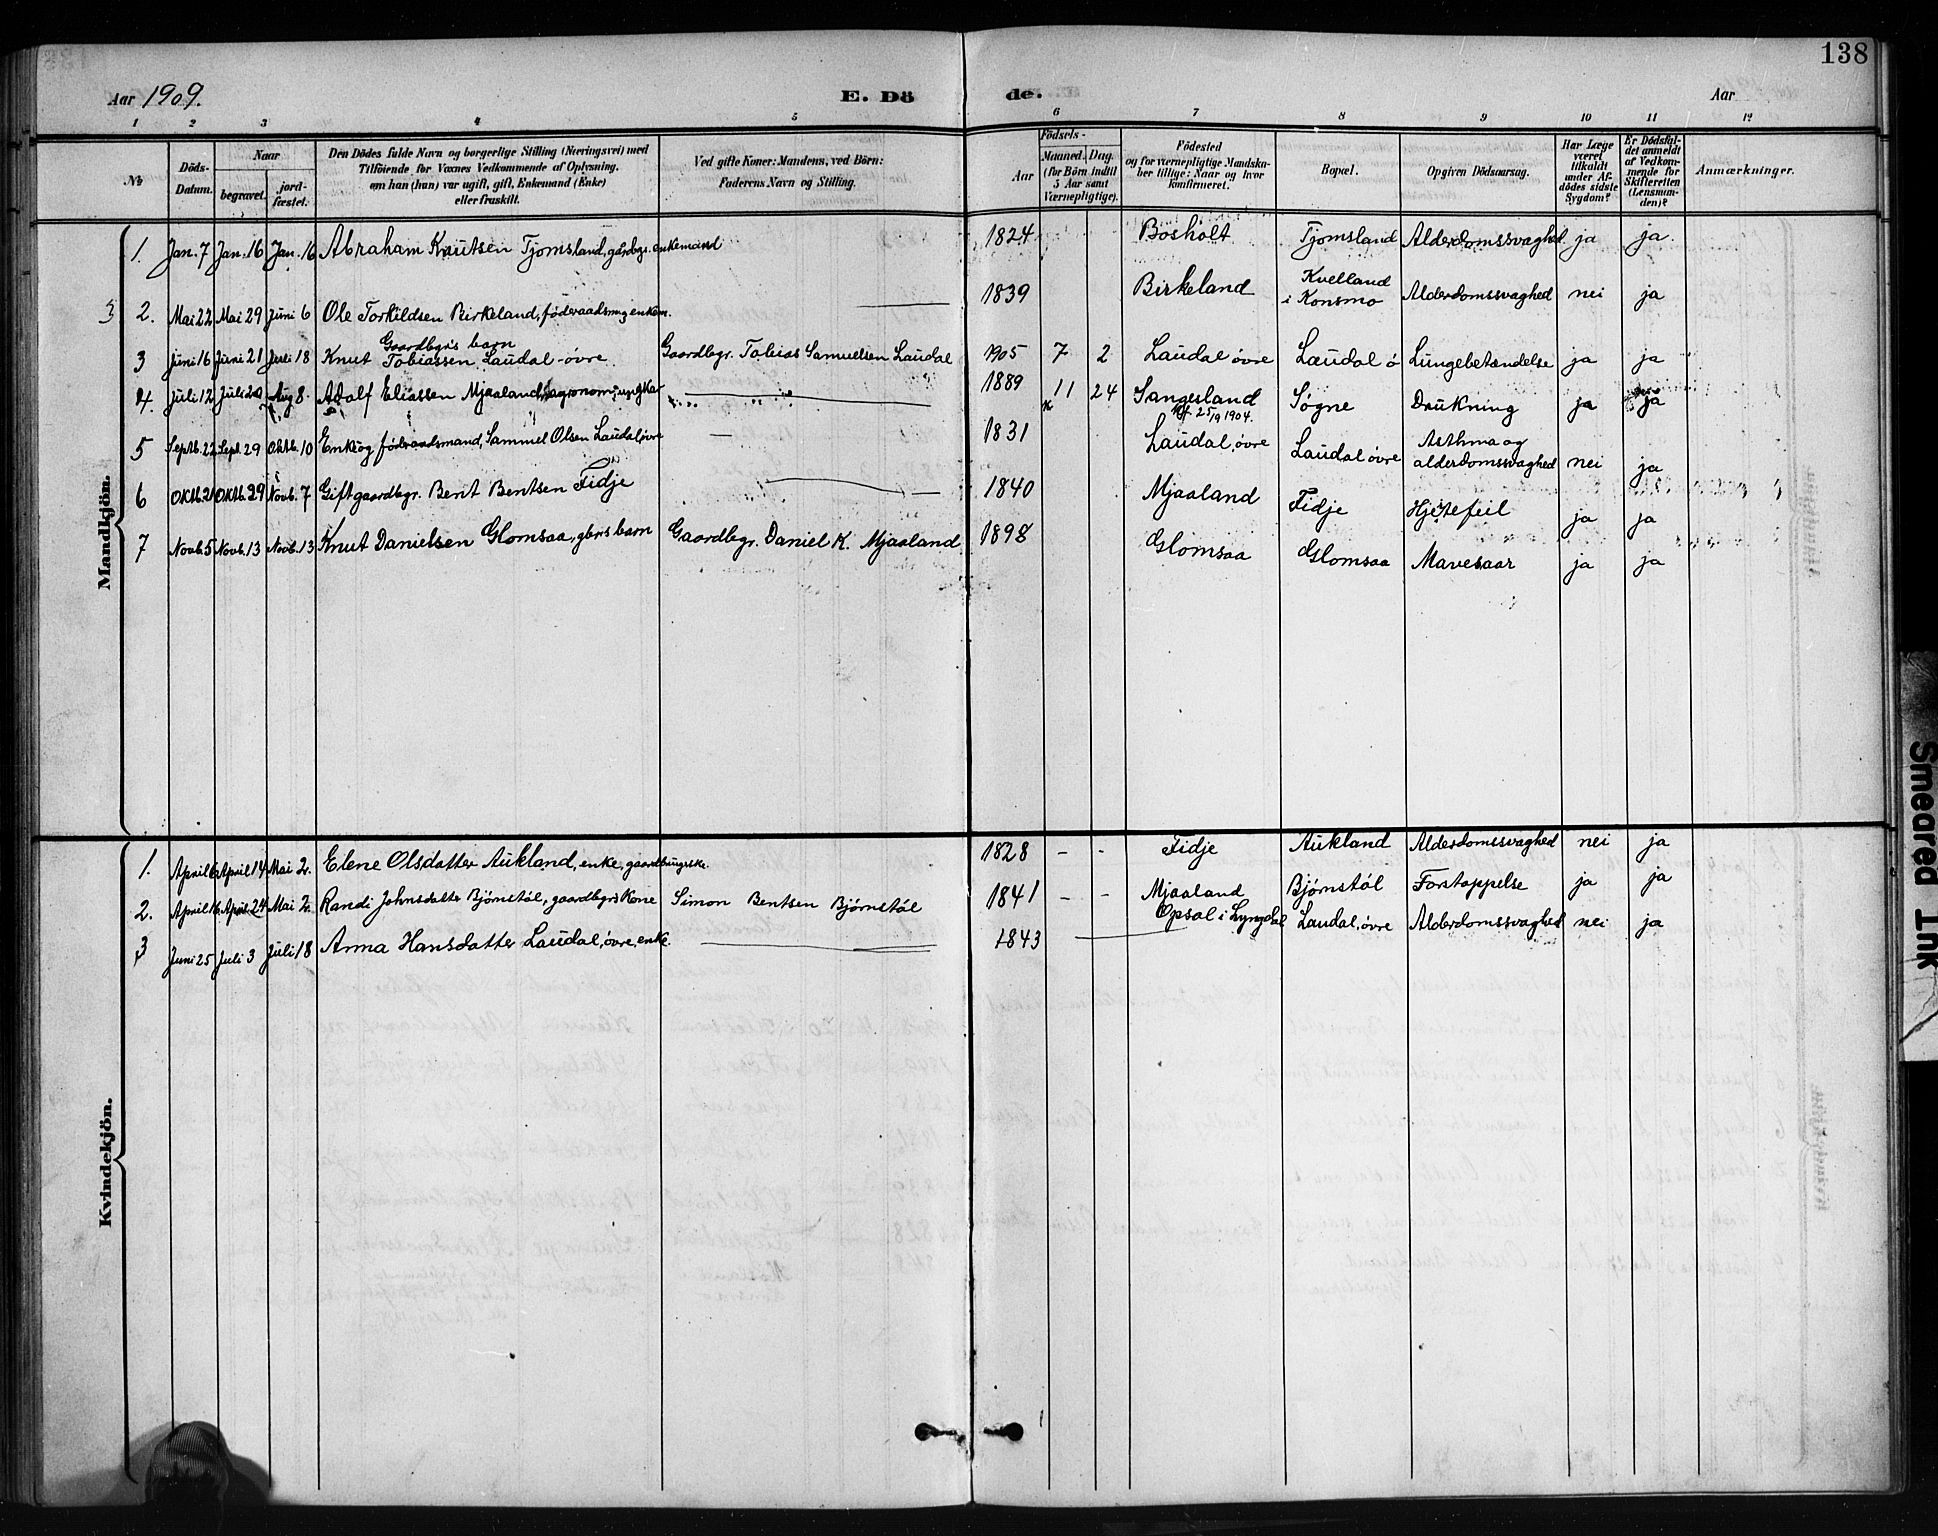 138
Aar 1909.
E. Dö
de.
Aar
1 2 3 4 5 6 7 8 9 10 11 12
№
Döds-Datum.
Naar
begravet.
jord-fæstet.
Den Dödes fulde Navn og borgerlige Stilling (Næringsvei) med
Tilföiende for Voxnes Vedkommende af Oplysning,
om han (hun) var ugift, gift, Enkemand (Enke)
eller fraskilt.
Ved gifte Koner: Mandens, ved Börn:
Faderens Navn og Stilling.
Födsels-
Aar
Maaned. Dag.
(for Börn indtil
5 Aar samt
Værnepligtige).
Födested
og for værnepligtige Mandskaber
tillige: Naar og hvor
konfirmeret.
Bopæl.
Opgiven Dödsaarsag.
Har Læge
været
tilkaldt
under Afdödes
sidste
Sygdom?
Er Dödsfaldet
anmeldt
af Vedkommende
for
Skifteretten
(Lensmanden)?
Anmærkninger.
Mandkjön.
1. Jan. 7 Jan. 16 Jan. 16 Abraham Knutsen Tjomsland, gårdbgr. enkemand 1824 Bosholt Tjomsland Alderdomssvaghed ja ja
3
2. Mai 22 Mai 29 Juni 6 Ole Torkildsen Birkeland, føderaadsm. og enkem. 1839 Birkeland Kvelland i Konsmo Alderdomssvaghed nei ja
3 Juni 16 Juni 21 Juli 18 Gaardbgr's barn Knut Tobiassen Laudal øvre Gaardbgr. Tobias Samuelsen Laudal 1905 7 2 Laudal øvre Laudal ø Lungebetændelse ja ja
4. Juli 12 Juli 20 Aug 8. Adolf Eliassen Mjaaland, agronom, ungkar 1889 11 24 Sangesland Kf. 25/9 1904. Søgne Drukning ja ja
5 Septb. 22 Sept. 29 Oktb. 10 Enke og føderaadsmand, Sammel Olsen Laudal øvre — 1831 Laudal, øvre Laudal øvre Asthma og alderdomssvaghed nei ja
6 Oktb. 21 Oktb. 29 Novb. 7 Gift gaardbgr. Berit Bentsen Fidje 1840 Mjaaland Fidje Hjertefeil ja ja
7 Novb. 5 Novb. 13 Novb. 13 Knut Danielsen Glomsaa, gbrs barn Gaardbgr. Daniel K. Mjaaland 1898 Glomsaa Glomsaa Mavesaar ja ja
Kvindekjön.
1. April 6 April 14 Mai 2. Elene Olsdatter Aukland, enke, gaardbrugerske. 1828 - - Fidje Aukland Alderdomssvaghed nei ja
2. April 16 April 24 Mai 2. Randi Johnsdatter Bjørnstøl, gaardbgr's Kone Simon Bentsen Bjørnstøl 1841 - - Mjaaland Bjørnstøl Forstoppelse ja ja
3 Juni 25 Juli 3 Juli 18 Anna Hansdatter Laudal, øvre, enke. 1843 Opsal i Lyngdal Laudal, øvre Alderdomssvaghed nei ja
Smeared Ink